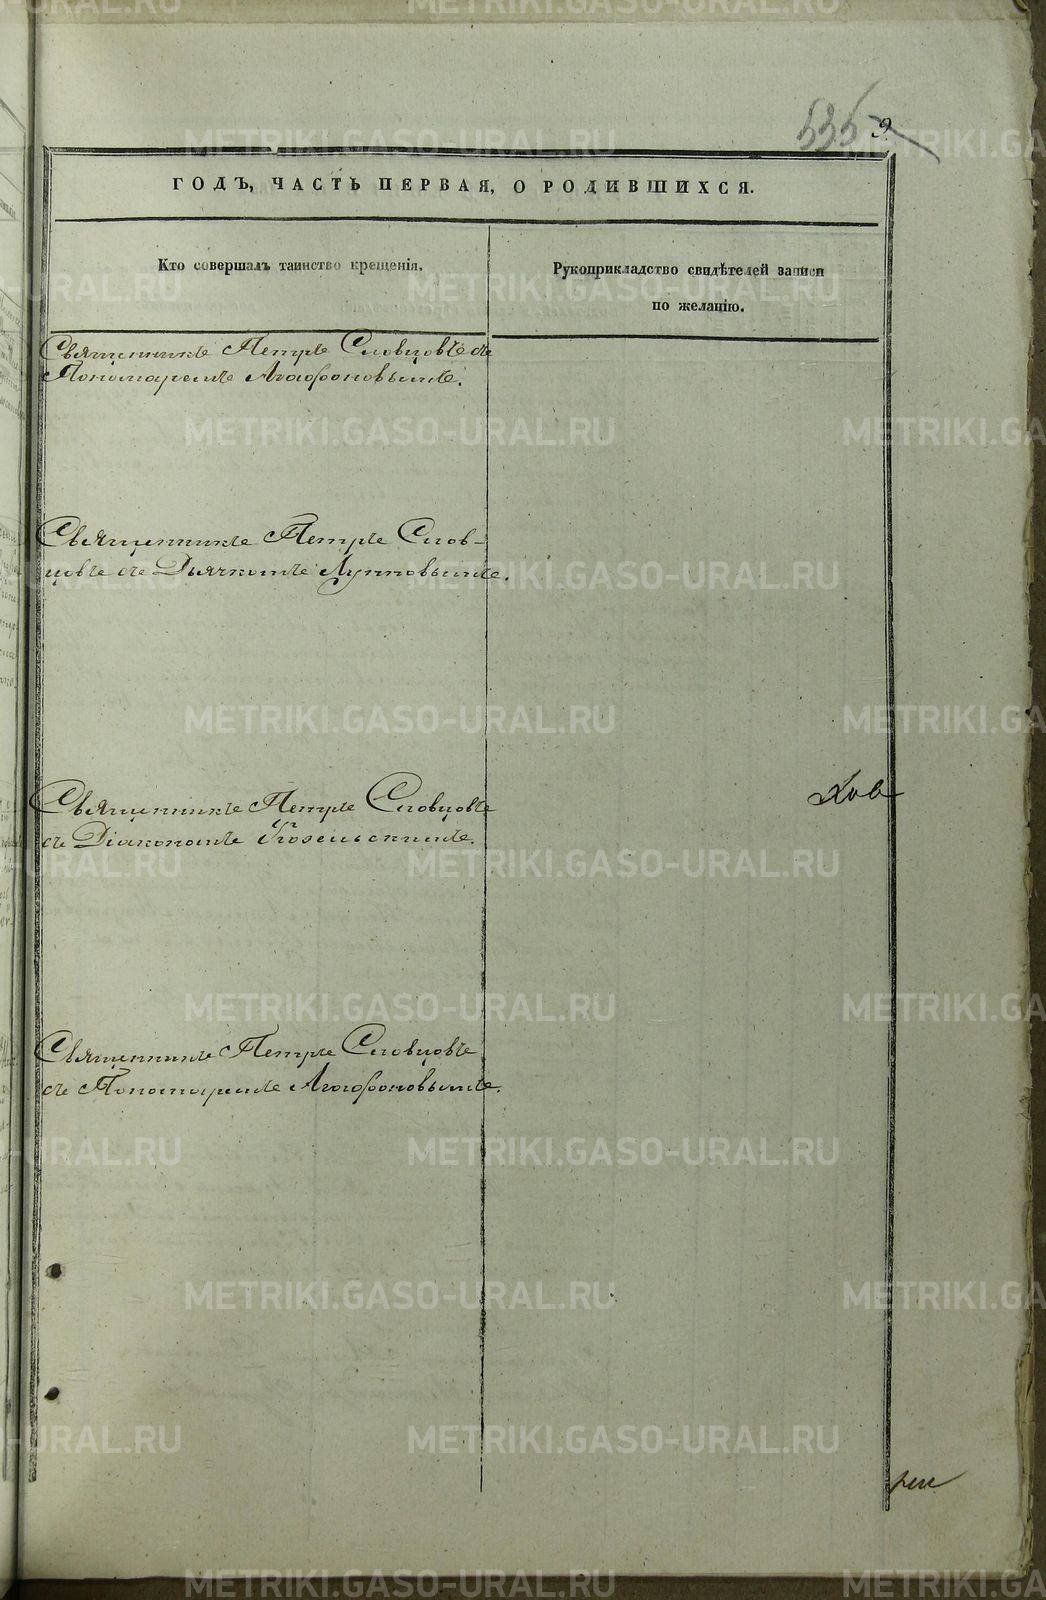 535 9
ГОДЪ, ЧАСТЬ ПЕРВАЯ, О РОДИВШИХСЯ.
Кто совершалъ таинство крещенія.
Рукоприкладство свидѣтелей записи
по желанію.
Священникъ Петръ Словцовъ съ
Пономаремъ Агафоновымъ.
Священникъ Петръ Слов-
цовъ съ Дьячкомъ Лупповымъ.
Священникъ Петръ Словцовъ
съ Діакономъ Козельскимъ.
Священникъ Петръ Словцовъ
съ Пономаремъ Агафоновымъ.
METRIKI.GASO-URAL.RU